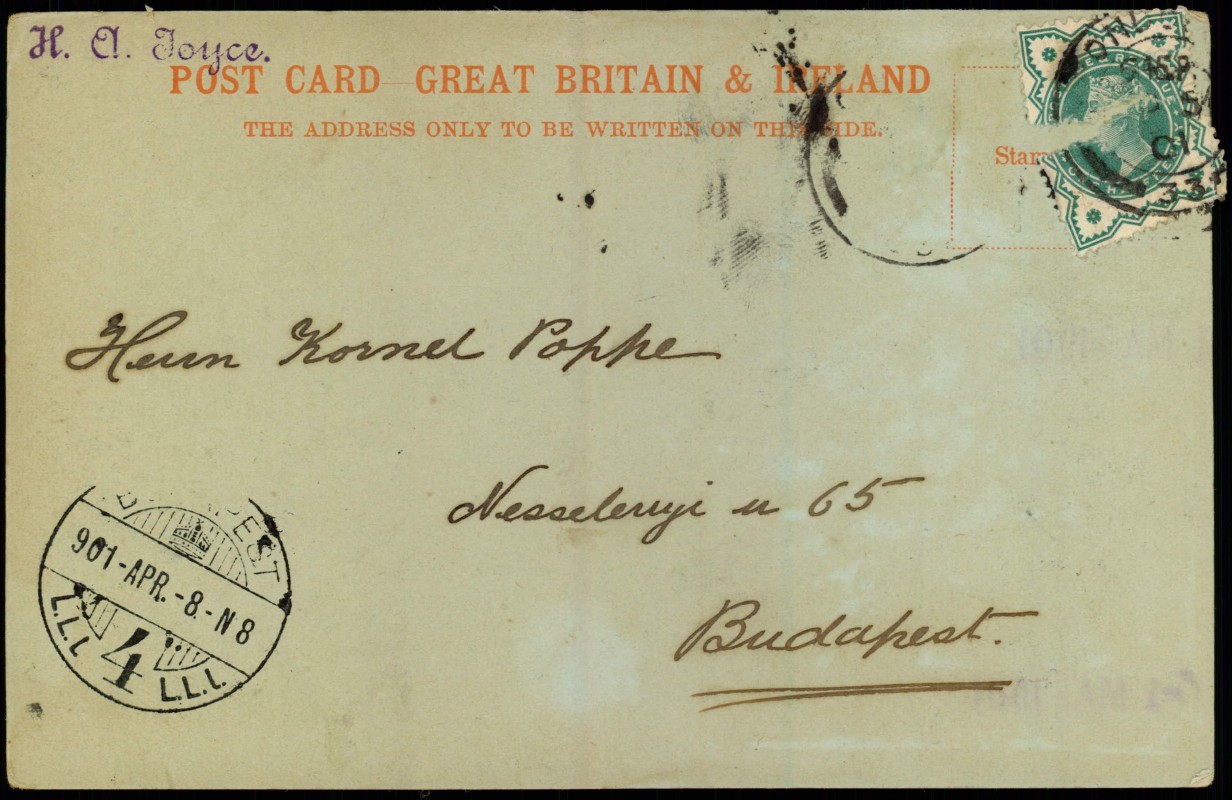 H. A. Joyce.
POST CARD—GREAT BRITAIN & IRELAND
THE ADDRESS ONLY TO BE WRITTEN ON THIS SIDE.
Stam
01
33
Herrn Kornel Poppe
Nesselenyi u 65
Budapest.
901-APR.-8.-N8
4